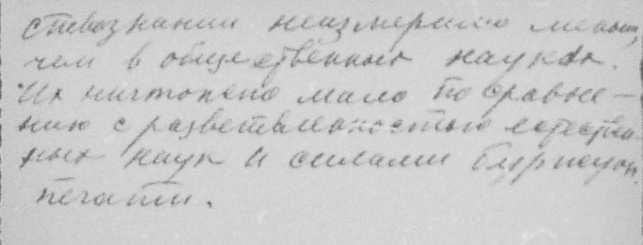 ствознании неизмеримо меньш,
чем в общественных науках.
Их ничтожно мало по сравне-
нию с разветвленностью естествен
ных наук и силами буржуаз.
печати.